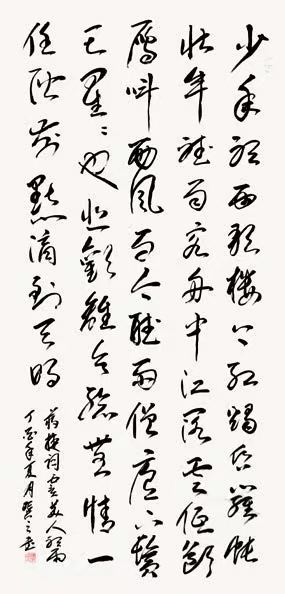 少年聽雨歌樓上紅燭昏羅帳
壯年聽雨客舟中江闊雲低斷
雁叫西風而今聽雨僧廬下鬢
已星〻也悲歡離合總無情一
任階前點滴到天明
蔣捷詞虞美人聽雨
丁酉年夏月